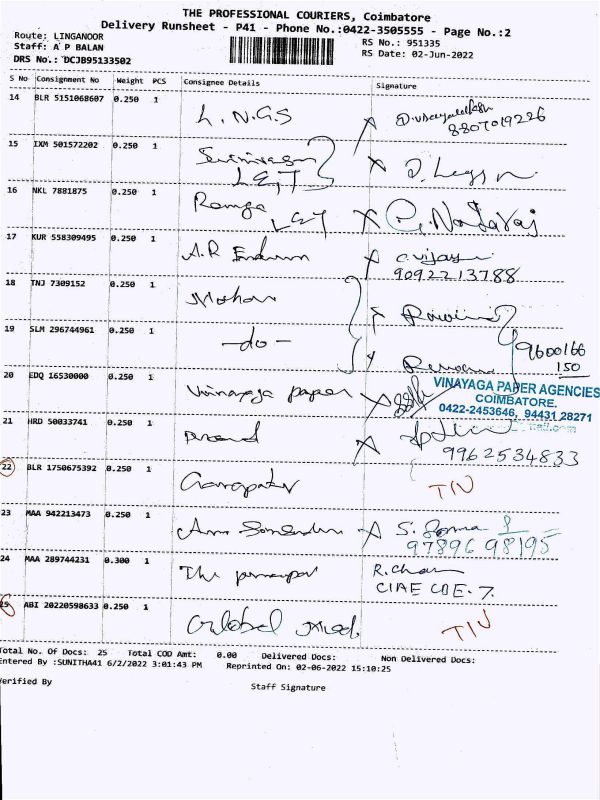 THE PROFESSIONAL COURIERS, Coimbatore
Delivery Runsheet - P41 - Phone No.:0422-3505555 - Page No.:2
Route: LINGANOOR
RS No.: 951335
Staff: A P BALAN
RS Date: 02-Jun-2022
DRS No.: DCJB95133502
S No Consignment No Weight PCS Consignee Details Signature
14 BLR 5151068607 0.250 1 L.N.G.S
8807019226
15 IXM 501572202 0.250 1 Srinivasan
L&T
16 NKL 7881875 0.250 1 Ranga L&T Nataraj
17 KUR 558309495 0.250 1 A.R C. Vijay
9092213788
18 TNJ 7309152 0.250 1 Mohan
19 SLM 296744961 0.250 1 -do- 9600166
150
20 EDQ 16530000 0.250 1 Vinayaga paper
VINAYAGA PAPER AGENCIES
COIMBATORE.
0422-2453646, 94431 28271
21 HRD 50033741 0.250 1
9962534833
22 BLR 1750675392 0.250 1 Ganapathy TIN
23 MAA 942213473 0.250 1
97896 98195
24 MAA 289744231 0.300 1 The principal R.Chan
CIAE CBE-7.
25 ABI 20220598633 0.250 1 Global Med. TIN
Total No. Of Docs: 25 Total COD Amt: 0.00 Delivered Docs: Non Delivered Docs:
Entered By :SUNITHA41 6/2/2022 3:01:43 PM Reprinted On: 02-06-2022 15:10:25
Verified By
Staff Signature